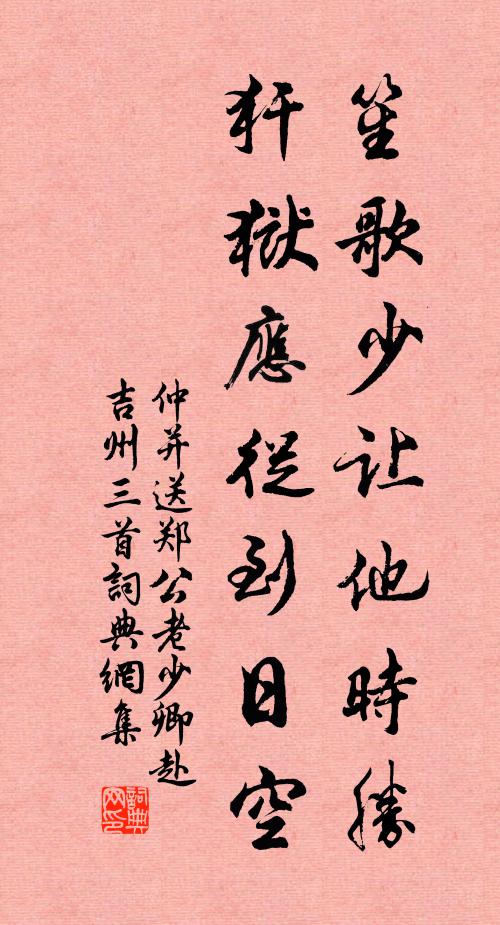 笙歌少让他時勝
犴獄應從到日空
仲并送郑公老少卿赴
吉州三首詞典網集
詞典网印